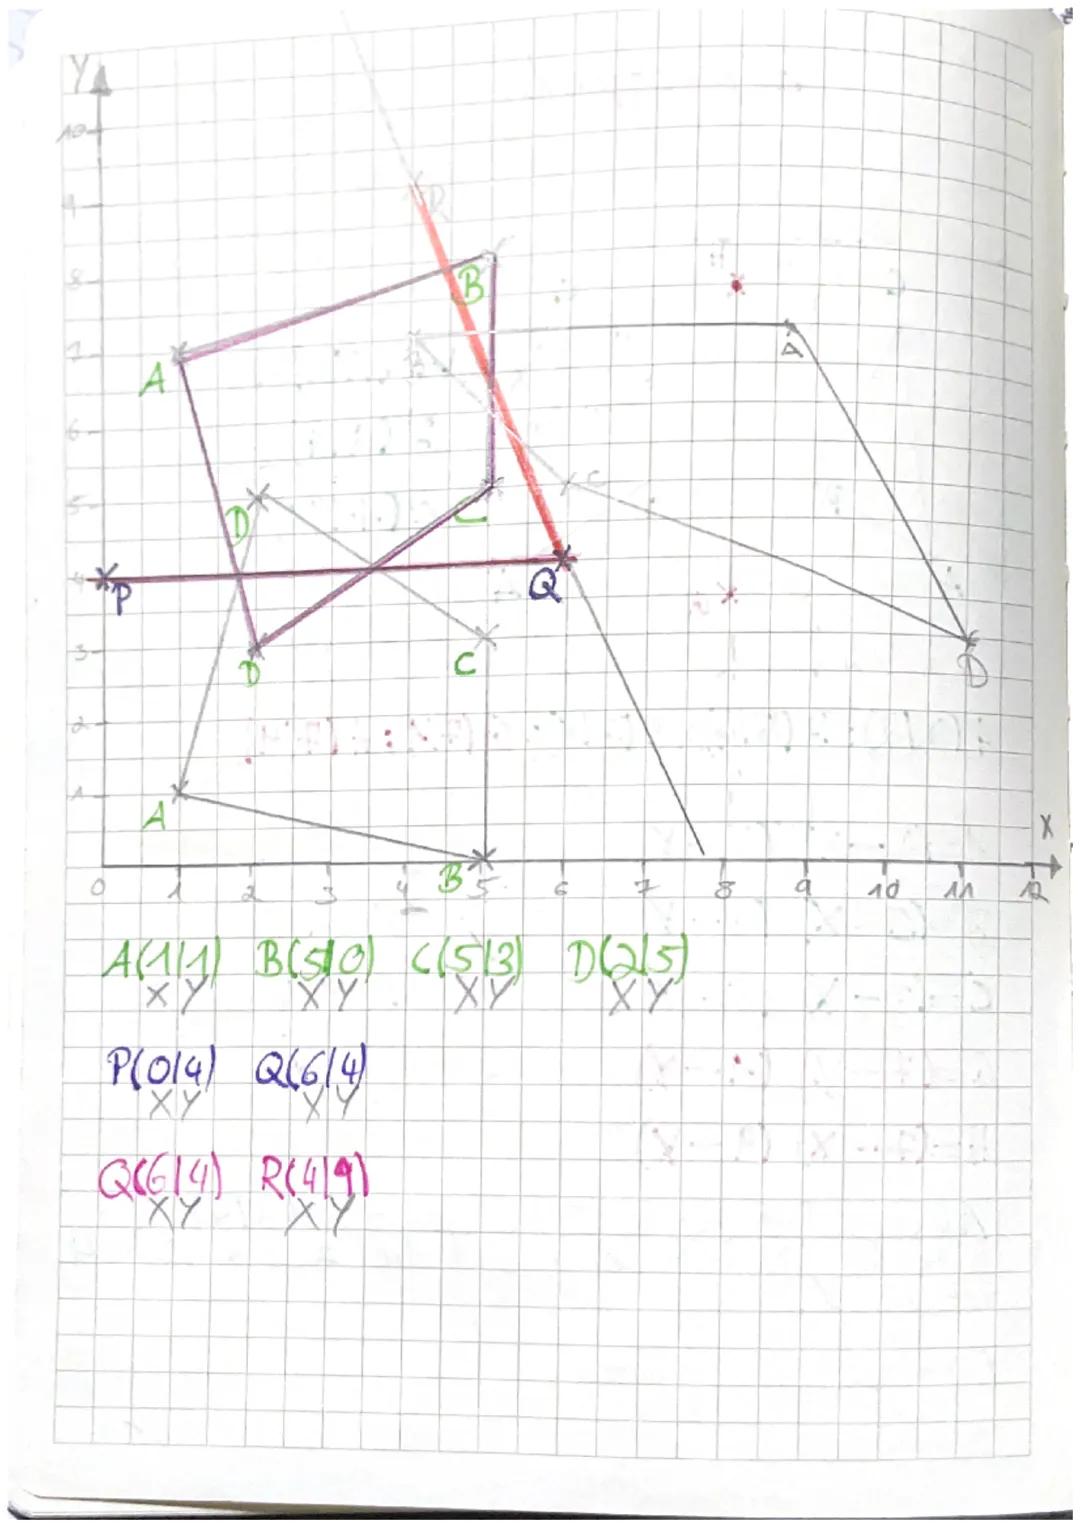 Y
10
9
R
8
B
7
A
A
B
6
C
5
D
C
4
P
Q
3
D
C
D
2
1
A
X
B
0 1 2 3 4 5 6 7 8 9 10 11 12
A(1|1) B(5|0) C(5|3) D(2|5)
X Y X Y X Y X Y
P(0|4) Q(6|4)
X Y X Y
Q(6|4) R(4|9)
X Y X Y